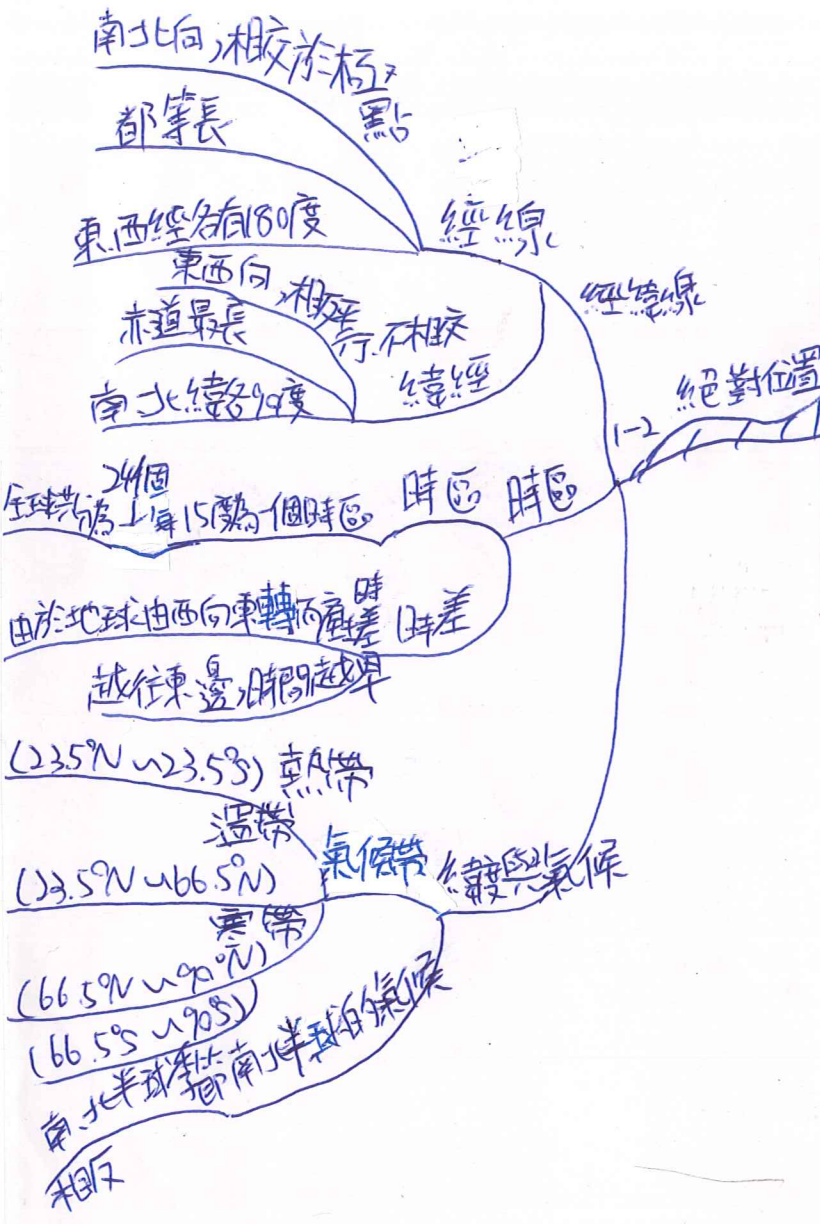 南北向,相交於極
點
都等長
東.西經各有180度
經線
東西向,相互平
行.不相交
赤道最長
南北緯各90度
緯經
經緯線
1-2 絕對位置
24個
全球共分為 每15度為一個時區
時區 時區
由於地球由西向東轉而產生時差
時差
越往東邊,時間越早
(23.5°N~23.5°S) 熱帶
溫帶
(23.5°N~66.5°N)
氣候帶
緯度與氣候
寒帶
(66.5°N~90°N)
(66.5°S~90°S)
南.北半球季節南北半球的氣候
相反